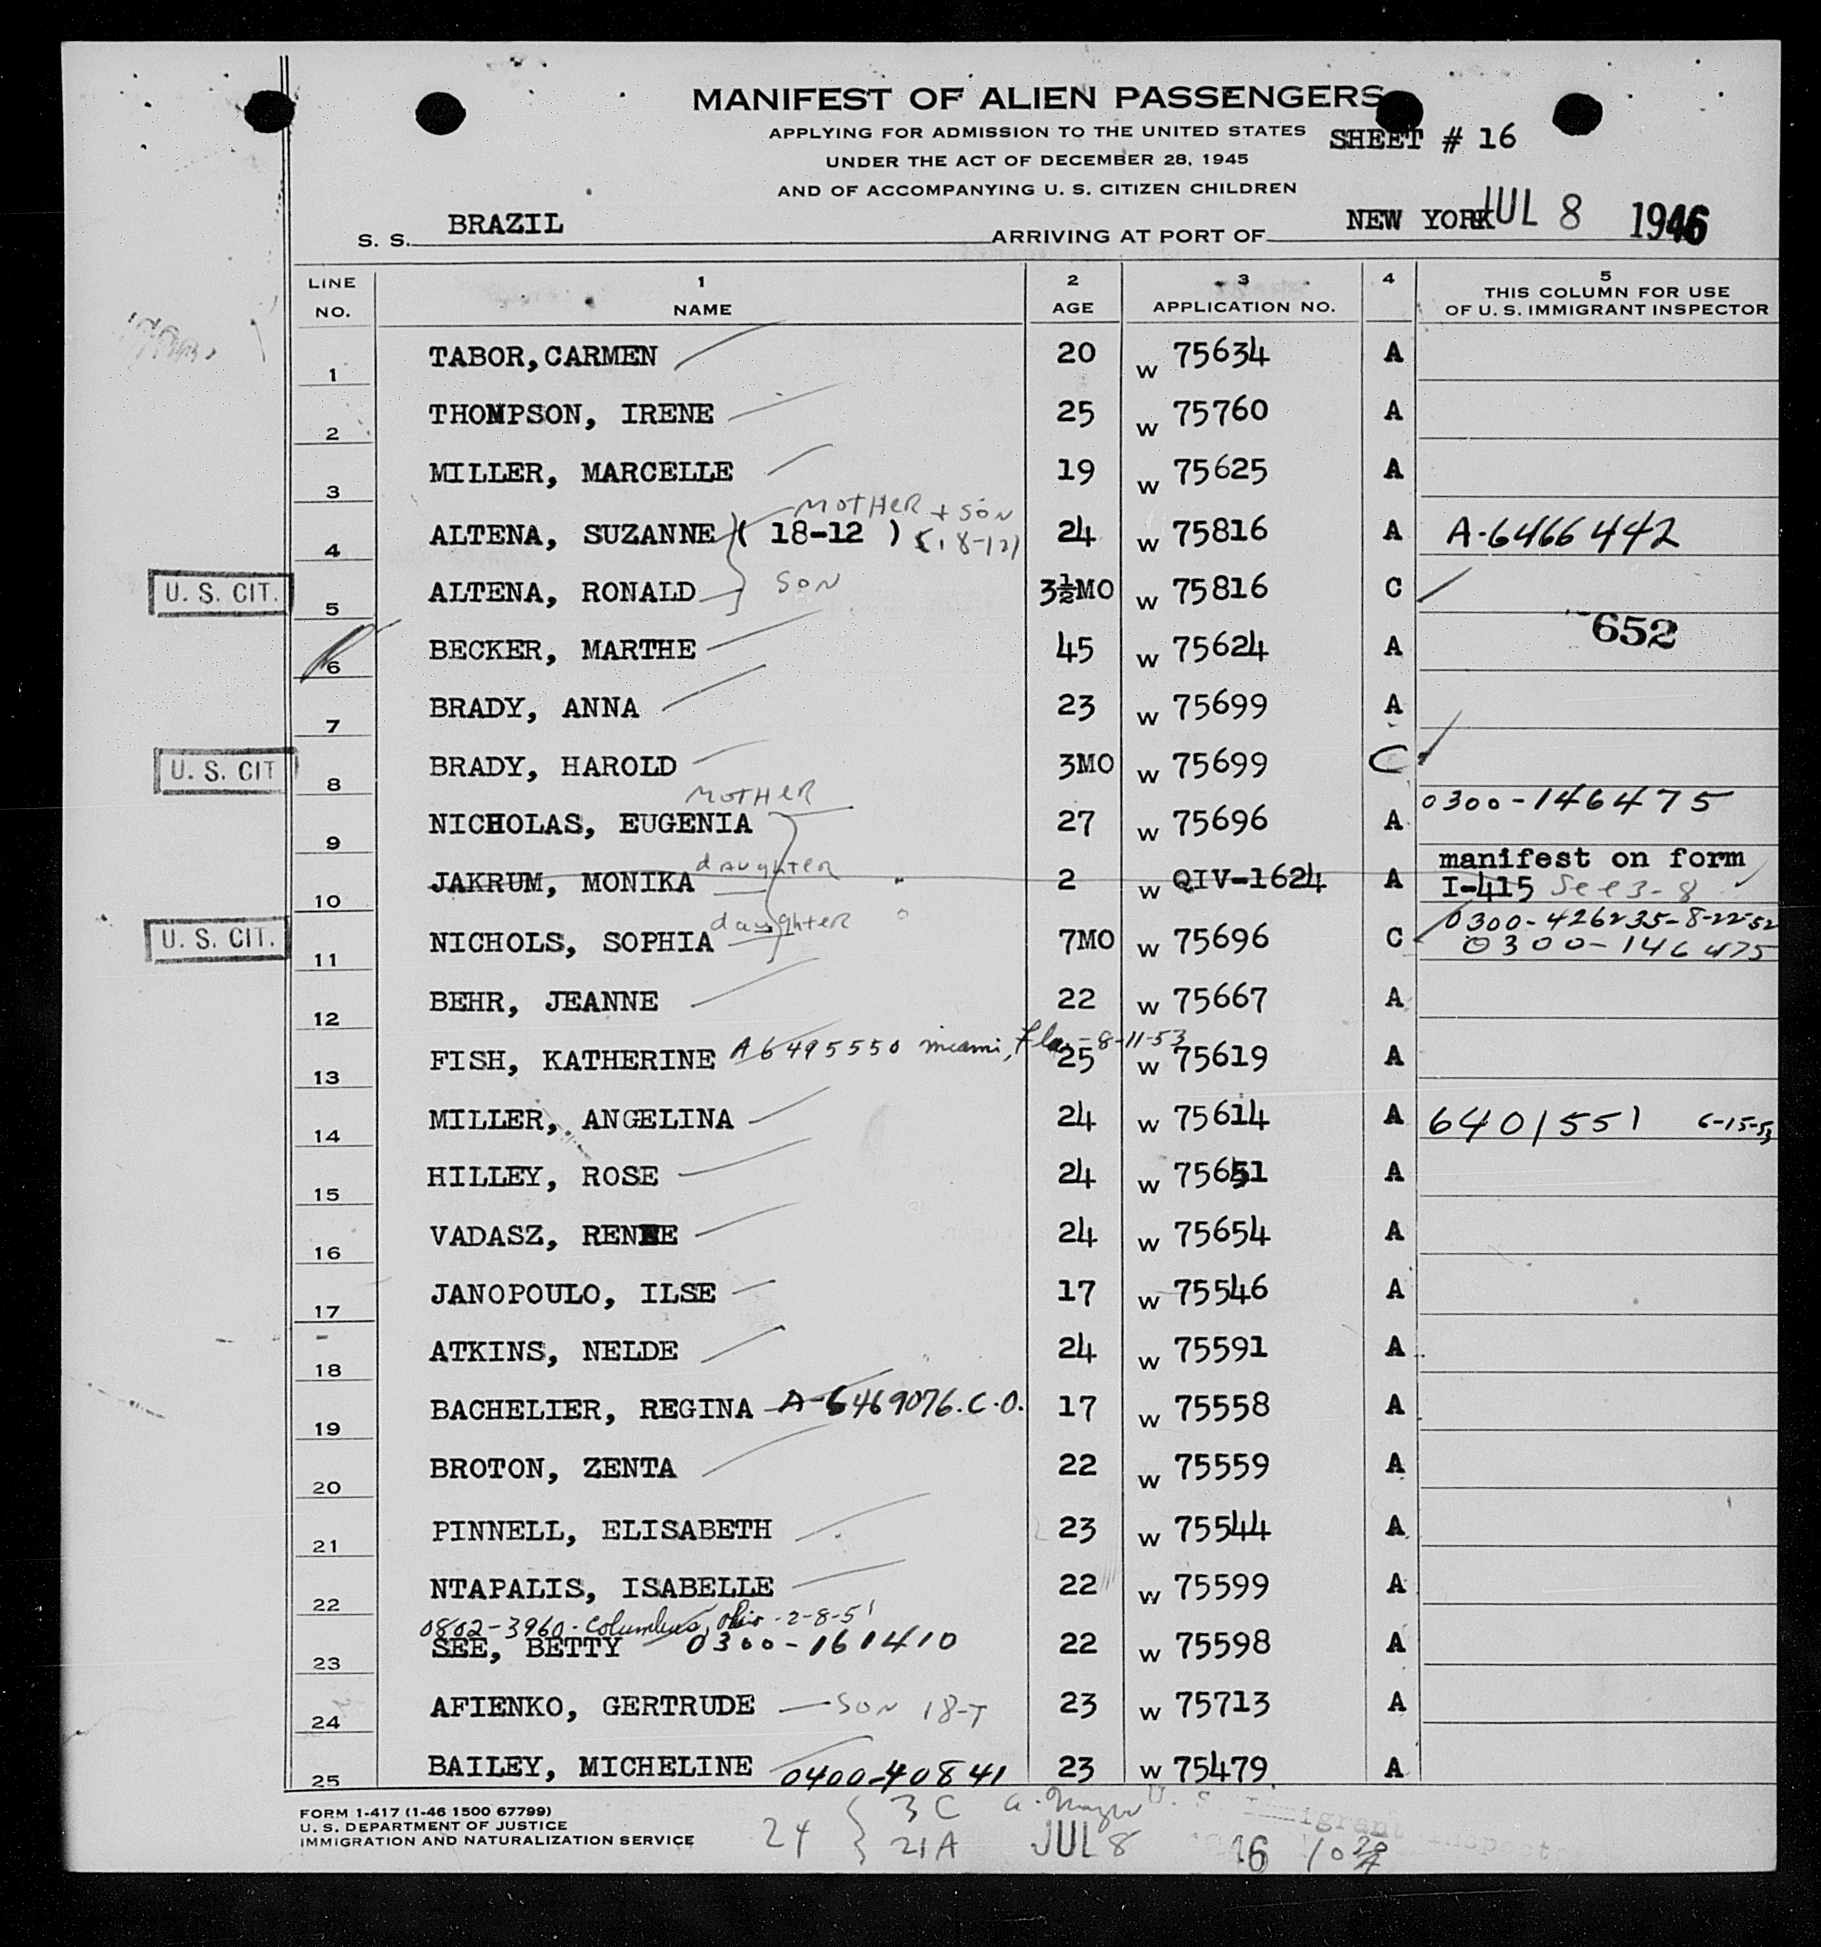 MANIFEST OF ALIEN PASSENGERS
APPLYING FOR ADMISSION TO THE UNITED STATES
SHEET # 16
UNDER THE ACT OF DECEMBER 28, 1945
AND OF ACCOMPANYING U. S. CITIZEN CHILDREN
S. S. BRAZIL ARRIVING AT PORT OF NEW YORK JUL 8 1946
LINE NO. 1 NAME 2 AGE 3 APPLICATION NO. 4 5 THIS COLUMN FOR USE OF U. S. IMMIGRANT INSPECTOR
1 TABOR, CARMEN 20 W 75634 A
2 THOMPSON, IRENE 25 W 75760 A
3 MILLER, MARCELLE 19 W 75625 A
MOTHER + SON
4 ALTENA, SUZANNE ( 18-12 ) (18-12) 24 W 75816 A A-6466442
U. S. CIT. 5 ALTENA, RONALD SON 3½MO W 75816 C
652
6 BECKER, MARTHE 45 W 75624 A
7 BRADY, ANNA 23 W 75699 A
U. S. CIT 8 BRADY, HAROLD 3MO W 75699 C
MOTHER
0300-146475
9 NICHOLAS, EUGENIA 27 W 75696 A
daughter
manifest on form
10 JAKRUM, MONIKA " 2 W QIV-1624 A I-415 See 3-8
daughter
0300-426235-8-22-52
U. S. CIT. 11 NICHOLS, SOPHIA 7MO W 75696 C 0300-146475
12 BEHR, JEANNE 22 W 75667 A
13 FISH, KATHERINE A6495550 miami, Fla-8-11-53 25 W 75619 A
14 MILLER, ANGELINA 24 W 75614 A 6401551 6-15-53
15 HILLEY, ROSE 24 W 75651 A
16 VADASZ, RENEE 24 W 75654 A
17 JANOPOULO, ILSE 17 W 75546 A
18 ATKINS, NELDE 24 W 75591 A
19 BACHELIER, REGINA A-6469076. C.O. 17 W 75558 A
20 BROTON, ZENTA 22 W 75559 A
21 PINNELL, ELISABETH 23 W 75544 A
22 NTAPALIS, ISABELLE 22 W 75599 A
0802-3960. Columbus, Ohio-2-8-51
23 SEE, BETTY 0300-161410 22 W 75598 A
24 AFIENKO, GERTRUDE SON 18-T 23 W 75713 A
25 BAILEY, MICHELINE 0400-40841 23 W 75479 A
FORM 1-417 (1-46 1500 67799)
U. S. DEPARTMENT OF JUSTICE
IMMIGRATION AND NATURALIZATION SERVICE
24 { 3 C
21 A
U. S. Immigrant Inspect
JUL 8